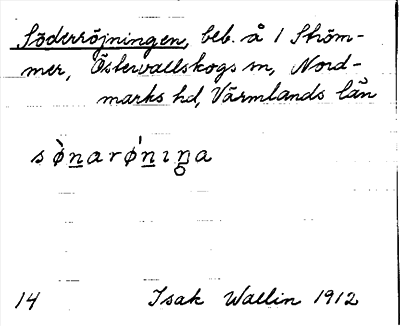 Söderröjningen, beb. å 1 Ström-
mer, Östervallskogs sn, Nord-
marks hd, Värmlands län
sø̀narøńıŋa
14 Isak Wallin 1912